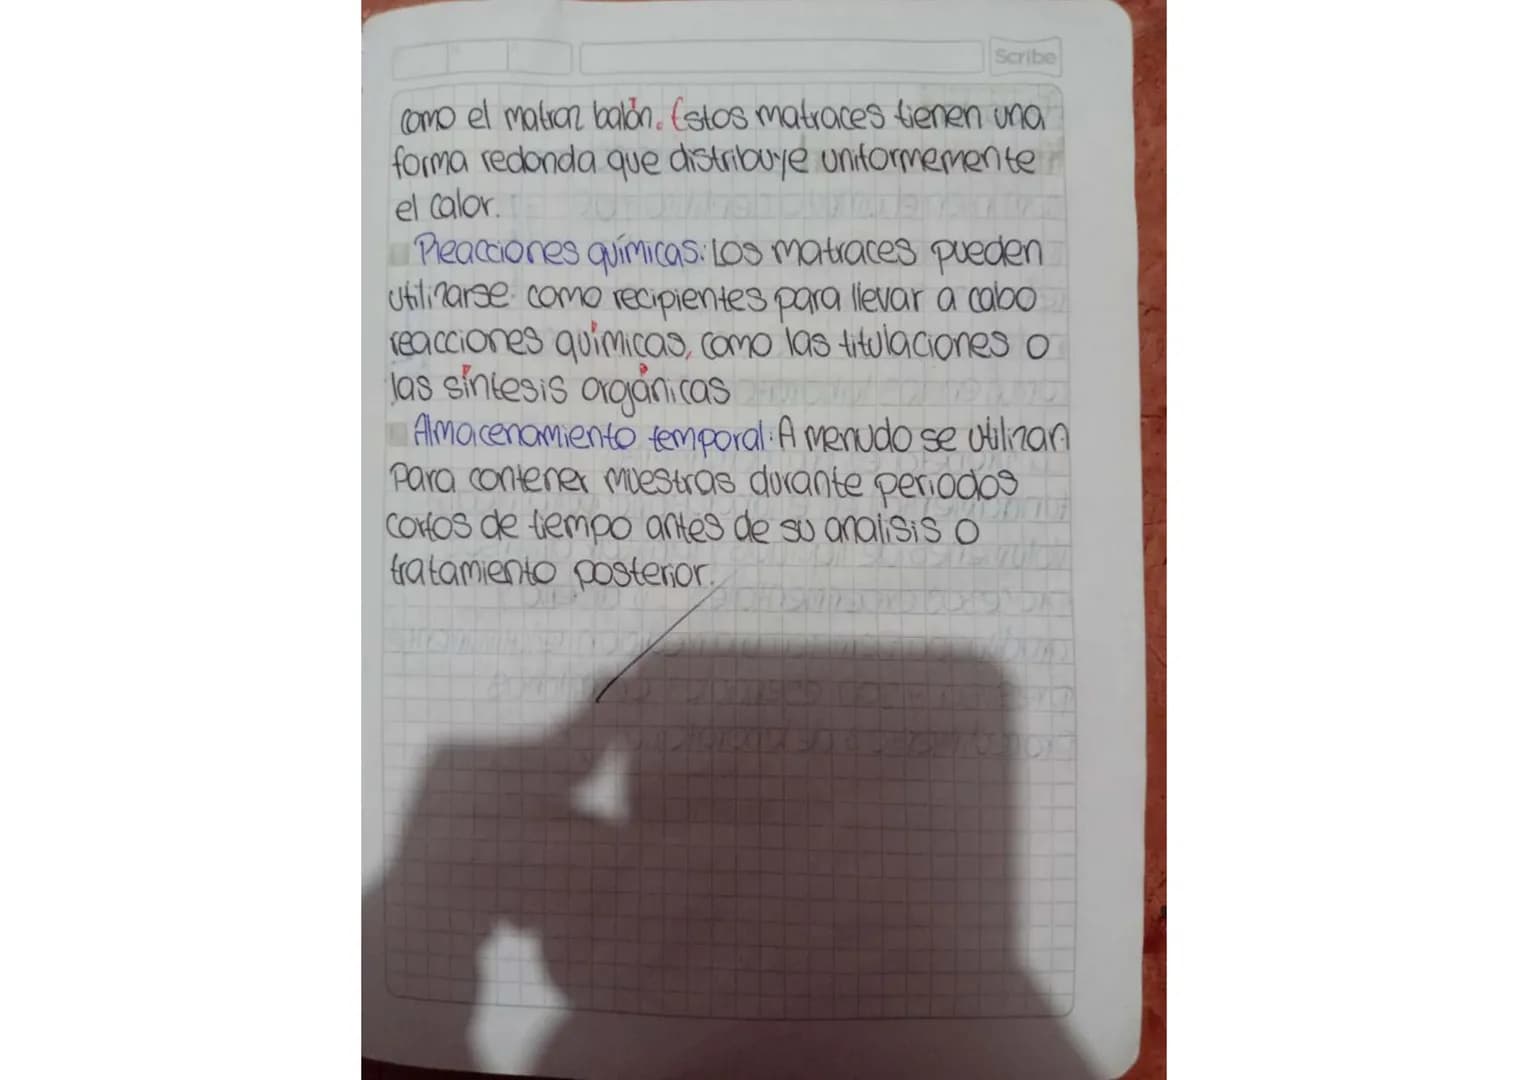 Scribe
como el matraz balón. Estos matraces tienen una
forma redonda que distribuye uniformemente
el calor.
Reacciones químicas: Los matraces pueden
utilizarse como recipientes para llevar a cabo
reacciones químicas, como las titulaciones o
las síntesis orgánicas
Almacenamiento temporal: A menudo se utilizan
Para contener muestras durante periodos
cortos de tiempo antes de su analisis o
tratamiento posterior.